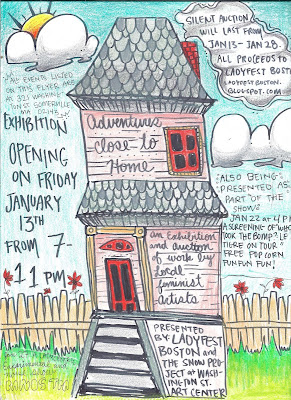 SILENT AUCTION
WILL LAST FROM
JAN 13 - JAN 28.
ALL PROCEEDS TO
LADYFEST BOSTON
LADYFESTBOSTON.
BLOGSPOT.COM.
ALL EVENTS LISTED
ON THIS FLYER ARE
AT 321 WASHING-
TON ST. SOMERVILLE
MA 02143
EXHIBITION
OPENING
ON FRIDAY
JANUARY
13TH
FROM 7-
11 PM
Adventures
close to
Home
an Exhibition
and auction
of work by
local
feminist
artists
PRESENTED
BY LADYFEST
BOSTON and
THE SNOW PRO-
JECT at WASH-
INGTON ST.
ART CENTER
ALSO BEING
PRESENTED AS
PART OF THE
SHOW:
JAN 22 at 4 PM
A SCREENING OF WHO
TOOK THE BOMP? LE
TIGRE ON TOUR
FREE POPCORN
FUN FUN FUN!